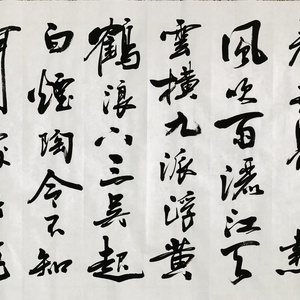 風吹雨灑江天
雲橫九派浮黃
鶴浪下三吳起
白煙陶令不知